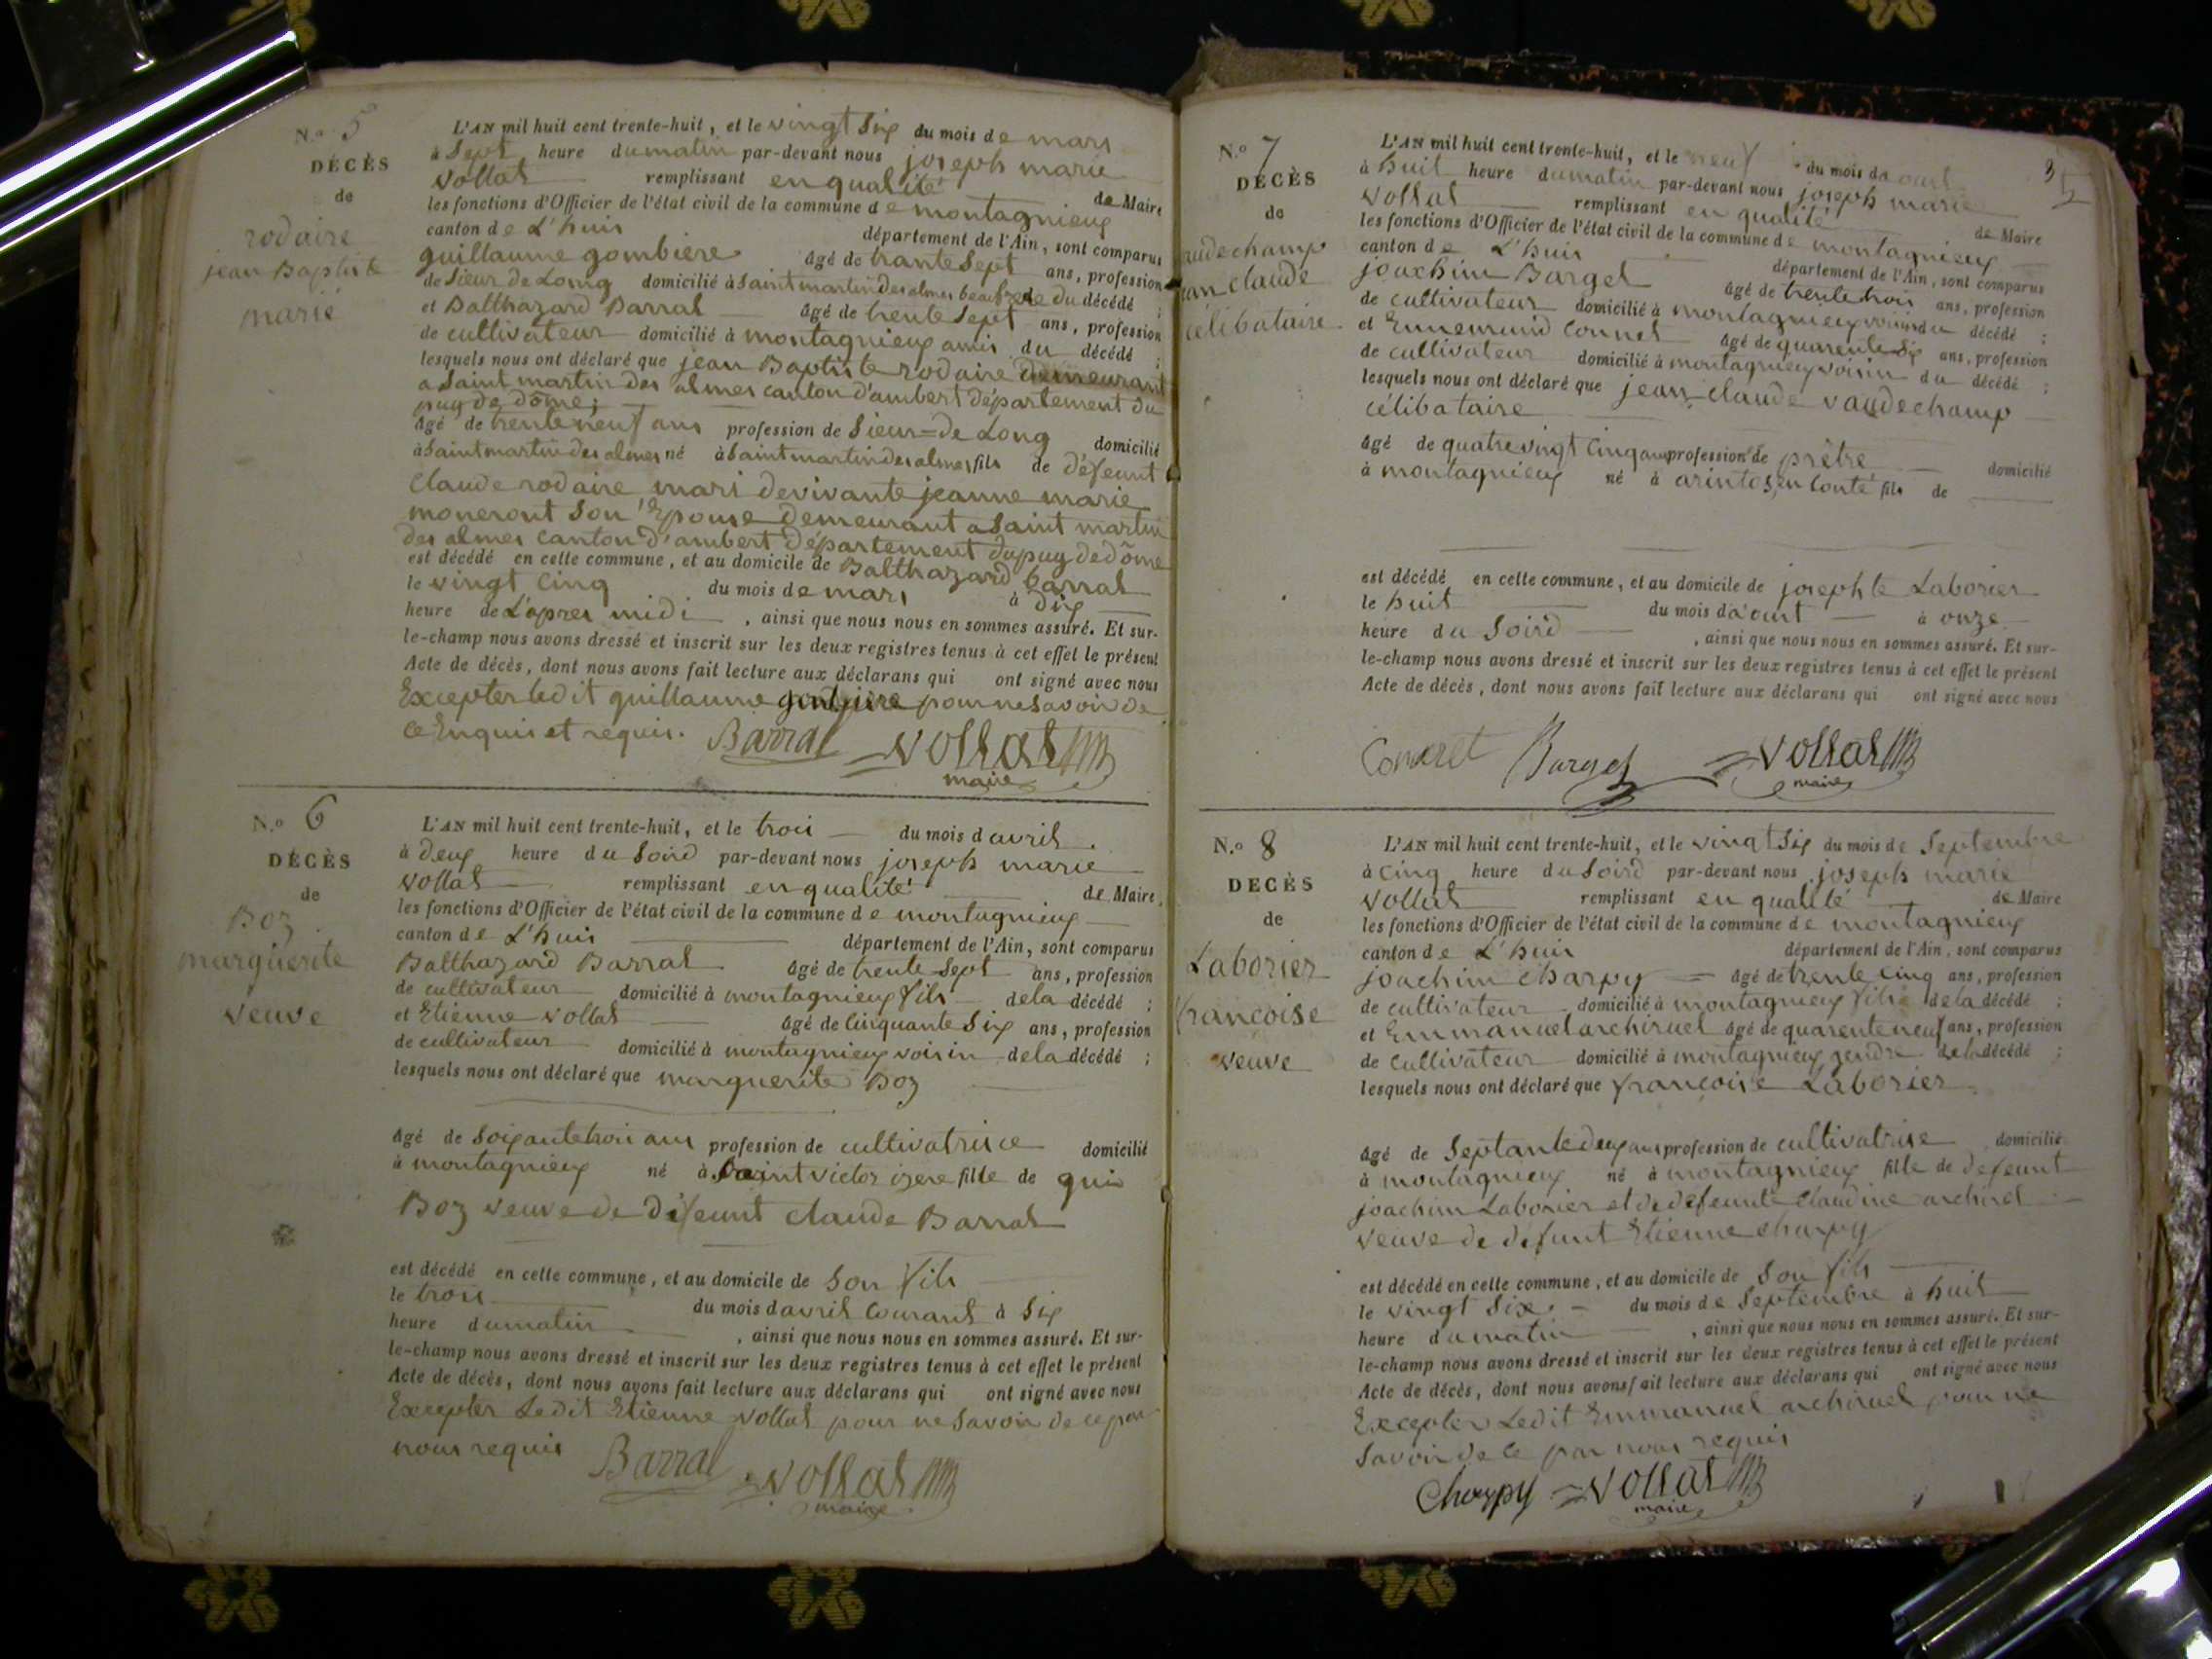 N.o 5
DÉCÈS
de
rodaire
jean Baptiste
marié
L'AN mil huit cent trente-huit, et le vingt six du mois de mars
à sept heure du matin par-devant nous joseph marie
vollat remplissant en qualité de Maire
les fonctions d'Officier de l'état civil de la commune de montagnieux
canton de L'huis département de l'Ain, sont comparus
guillaume gombiere âgé de trante sept ans, profession
de sieur de Long domicilié à saint martin des almes beaufrere du décédé ;
et Balthazard Barral âgé de trente sept ans, profession
de cultivateur domicilié à montagnieux amis du décédé ;
lesquels nous ont déclaré que jean Baptiste rodaire demeurant
a saint martin des almes canton d'ambert département du
puy de dôme ;
âgé de trente neuf ans profession de sieur=de Long domicilié
à saint martin des almes né à saint martin des almes fils de défeunt
claude rodaire mari de vivante jeanne marie
moneront son Epouse demeurant a saint martin
des almes canton d'ambert département du puy de dôme
est décédé en cette commune, et au domicile de Balthazard barral
le vingt cinq du mois de mars à dix
heure de L'apres midi , ainsi que nous nous en sommes assuré. Et sur-
le-champ nous avons dressé et inscrit sur les deux registres tenus à cet effet le présent
Acte de décès, dont nous avons fait lecture aux déclarans qui ont signé avec nous
Excepter ledit guillaume pour ne savoir de
ce Enquis et requis. Barral vollat
maire
N.o 6
DÉCÈS
de
Boz
marguerite
veuve
L'AN mil huit cent trente-huit, et le trois du mois d avril
à deux heure du soird par-devant nous joseph marie
vollat remplissant en qualité de Maire
les fonctions d'Officier de l'état civil de la commune de montagnieux
canton de L'huis département de l'Ain, sont comparus
Balthazard Barral âgé de trente sept ans, profession
de cultivateur domicilié à montagnieux fils de la décédé ;
et Etienne vollat âgé de cinquante six ans, profession
de cultivateur domicilié à montagnieux voisin de la décédé ;
lesquels nous ont déclaré que marguerite Boz
âgé de soixante trois ans profession de cultivatrice domicilié
à montagnieux né à saint victor izere fille de gui
Boz veuve de défeunt claude Barral
est décédé en cette commune, et au domicile de son fils
le trois du mois d avril courant à six
heure du matin , ainsi que nous nous en sommes assuré. Et sur-
le-champ nous avons dressé et inscrit sur les deux registres tenus à cet effet le présent
Acte de décès, dont nous avons fait lecture aux déclarans qui ont signé avec nous
Excepter Ledit Etienne vollat pour ne savoir de ce par
nous requis Barral vollat
maire
3
5
N.o 7
DÉCÈS
de
audechamp
jean claude
célibataire
L'AN mil huit cent trente-huit, et le neuf du mois d aout
à huit heure du matin par-devant nous joseph marie
vollat remplissant en qualité de Maire
les fonctions d'Officier de l'état civil de la commune de montagnieux
canton de L'huis département de l'Ain, sont comparus
joachim Barget âgé de trente trois ans, profession
de cultivateur domicilié à montagnieux voisin du décédé ;
et Ennemund Connet âgé de quarente six ans, profession
de cultivateur domicilié à montagnieux voisin du décédé ;
lesquels nous ont déclaré que jean claude vaudechamp
célibataire
âgé de quatre vingt cinq ans profession de prêtre domicilié
à montagnieux né à arintos en Conté fils de
est décédé en cette commune, et au domicile de joseph te Laborier
le huit du mois d'aout à onze
heure du soird , ainsi que nous nous en sommes assuré. Et sur-
le-champ nous avons dressé et inscrit sur les deux registres tenus à cet effet le présent
Acte de décès, dont nous avons fait lecture aux déclarans qui ont signé avec nous
Barget vollat
maire
N.o 8
DECÈS
de
Laborier
francoise
veuve
L'AN mil huit cent trente-huit, et le vingt six du mois de septembre
à cinq heure du soird par-devant nous joseph marie
vollat remplissant en qualité de Maire
les fonctions d'Officier de l'état civil de la commune de montagnieux
canton de L'huis département de l'Ain, sont comparus
joachim charpy âgé de trente cinq ans, profession
de cultivateur domicilié à montagnieux fils de la décédé ;
et Emmanuel archiruel âgé de quarente neuf ans, profession
de cultivateur domicilié à montagnieux gendre de la décédé ;
lesquels nous ont déclaré que francoise Laborier
âgé de septante deux ans profession de cultivatrise domicilié
à montagnieux né à montagnieux fille de defeunt
joachim Laborier et de defeunte claudine archirel
veuve de défunt Etienne charpy
est décédé en cette commune, et au domicile de son fils
le vingt six du mois de septembre à huit
heure du matin , ainsi que nous nous en sommes assuré. Et sur-
le-champ nous avons dressé et inscrit sur les deux registres tenus à cet effet le présent
Acte de décès, dont nous avons fait lecture aux déclarans qui ont signé avec nous
Excepter Ledit Emmanuel archiruel pour ne
savoir de ce par nous requis
Charpy vollat
maire